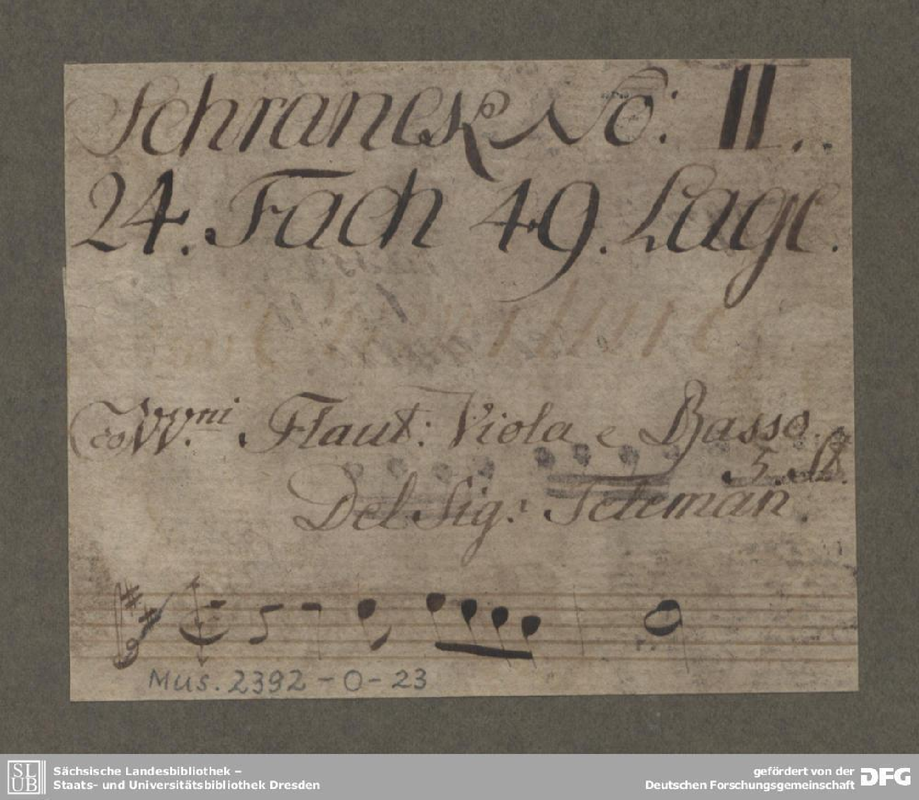 Schranck No: II.
24. Fach 49. Lage.
co VV.ni Flaut: Viola e Basso.
5. St.
Del Sig: Teleman.
Mus. 2392-O-23
SLUB
Sächsische Landesbibliothek –
Staats- und Universitätsbibliothek Dresden
gefördert von der
Deutschen Forschungsgemeinschaft
DFG